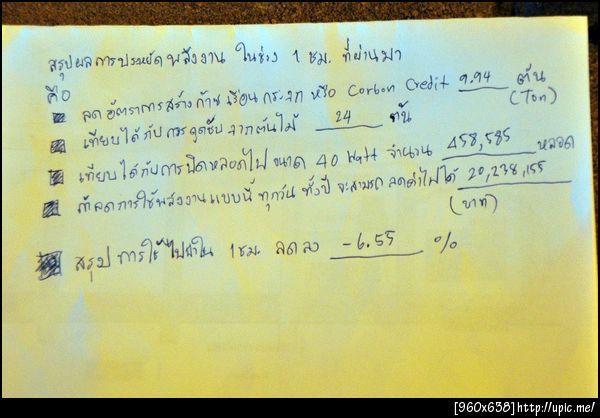 สรุปผลการประหยัดพลังงาน ในช่วง 1 ชม. ที่ผ่านมา
คือ
ลดอัตราการสร้างก๊าซเรือนกระจก หรือ Carbon Credit 9.94 ตัน (Ton)
เทียบได้กับการดูดซับจากต้นไม้ 24 ต้น
เทียบได้กับการปิดหลอดไฟขนาด 40 Watt จำนวน 458,585 หลอด
ถ้าลดการใช้พลังงานแบบนี้ ทุกวัน ทั้งปี จะสามารถลดค่าไฟได้ 20,238,155 (บาท)
สรุป การใช้ไฟฟ้าใน 1 ชม. ลดลง -6.55 %
[960x638]http://upic.me/